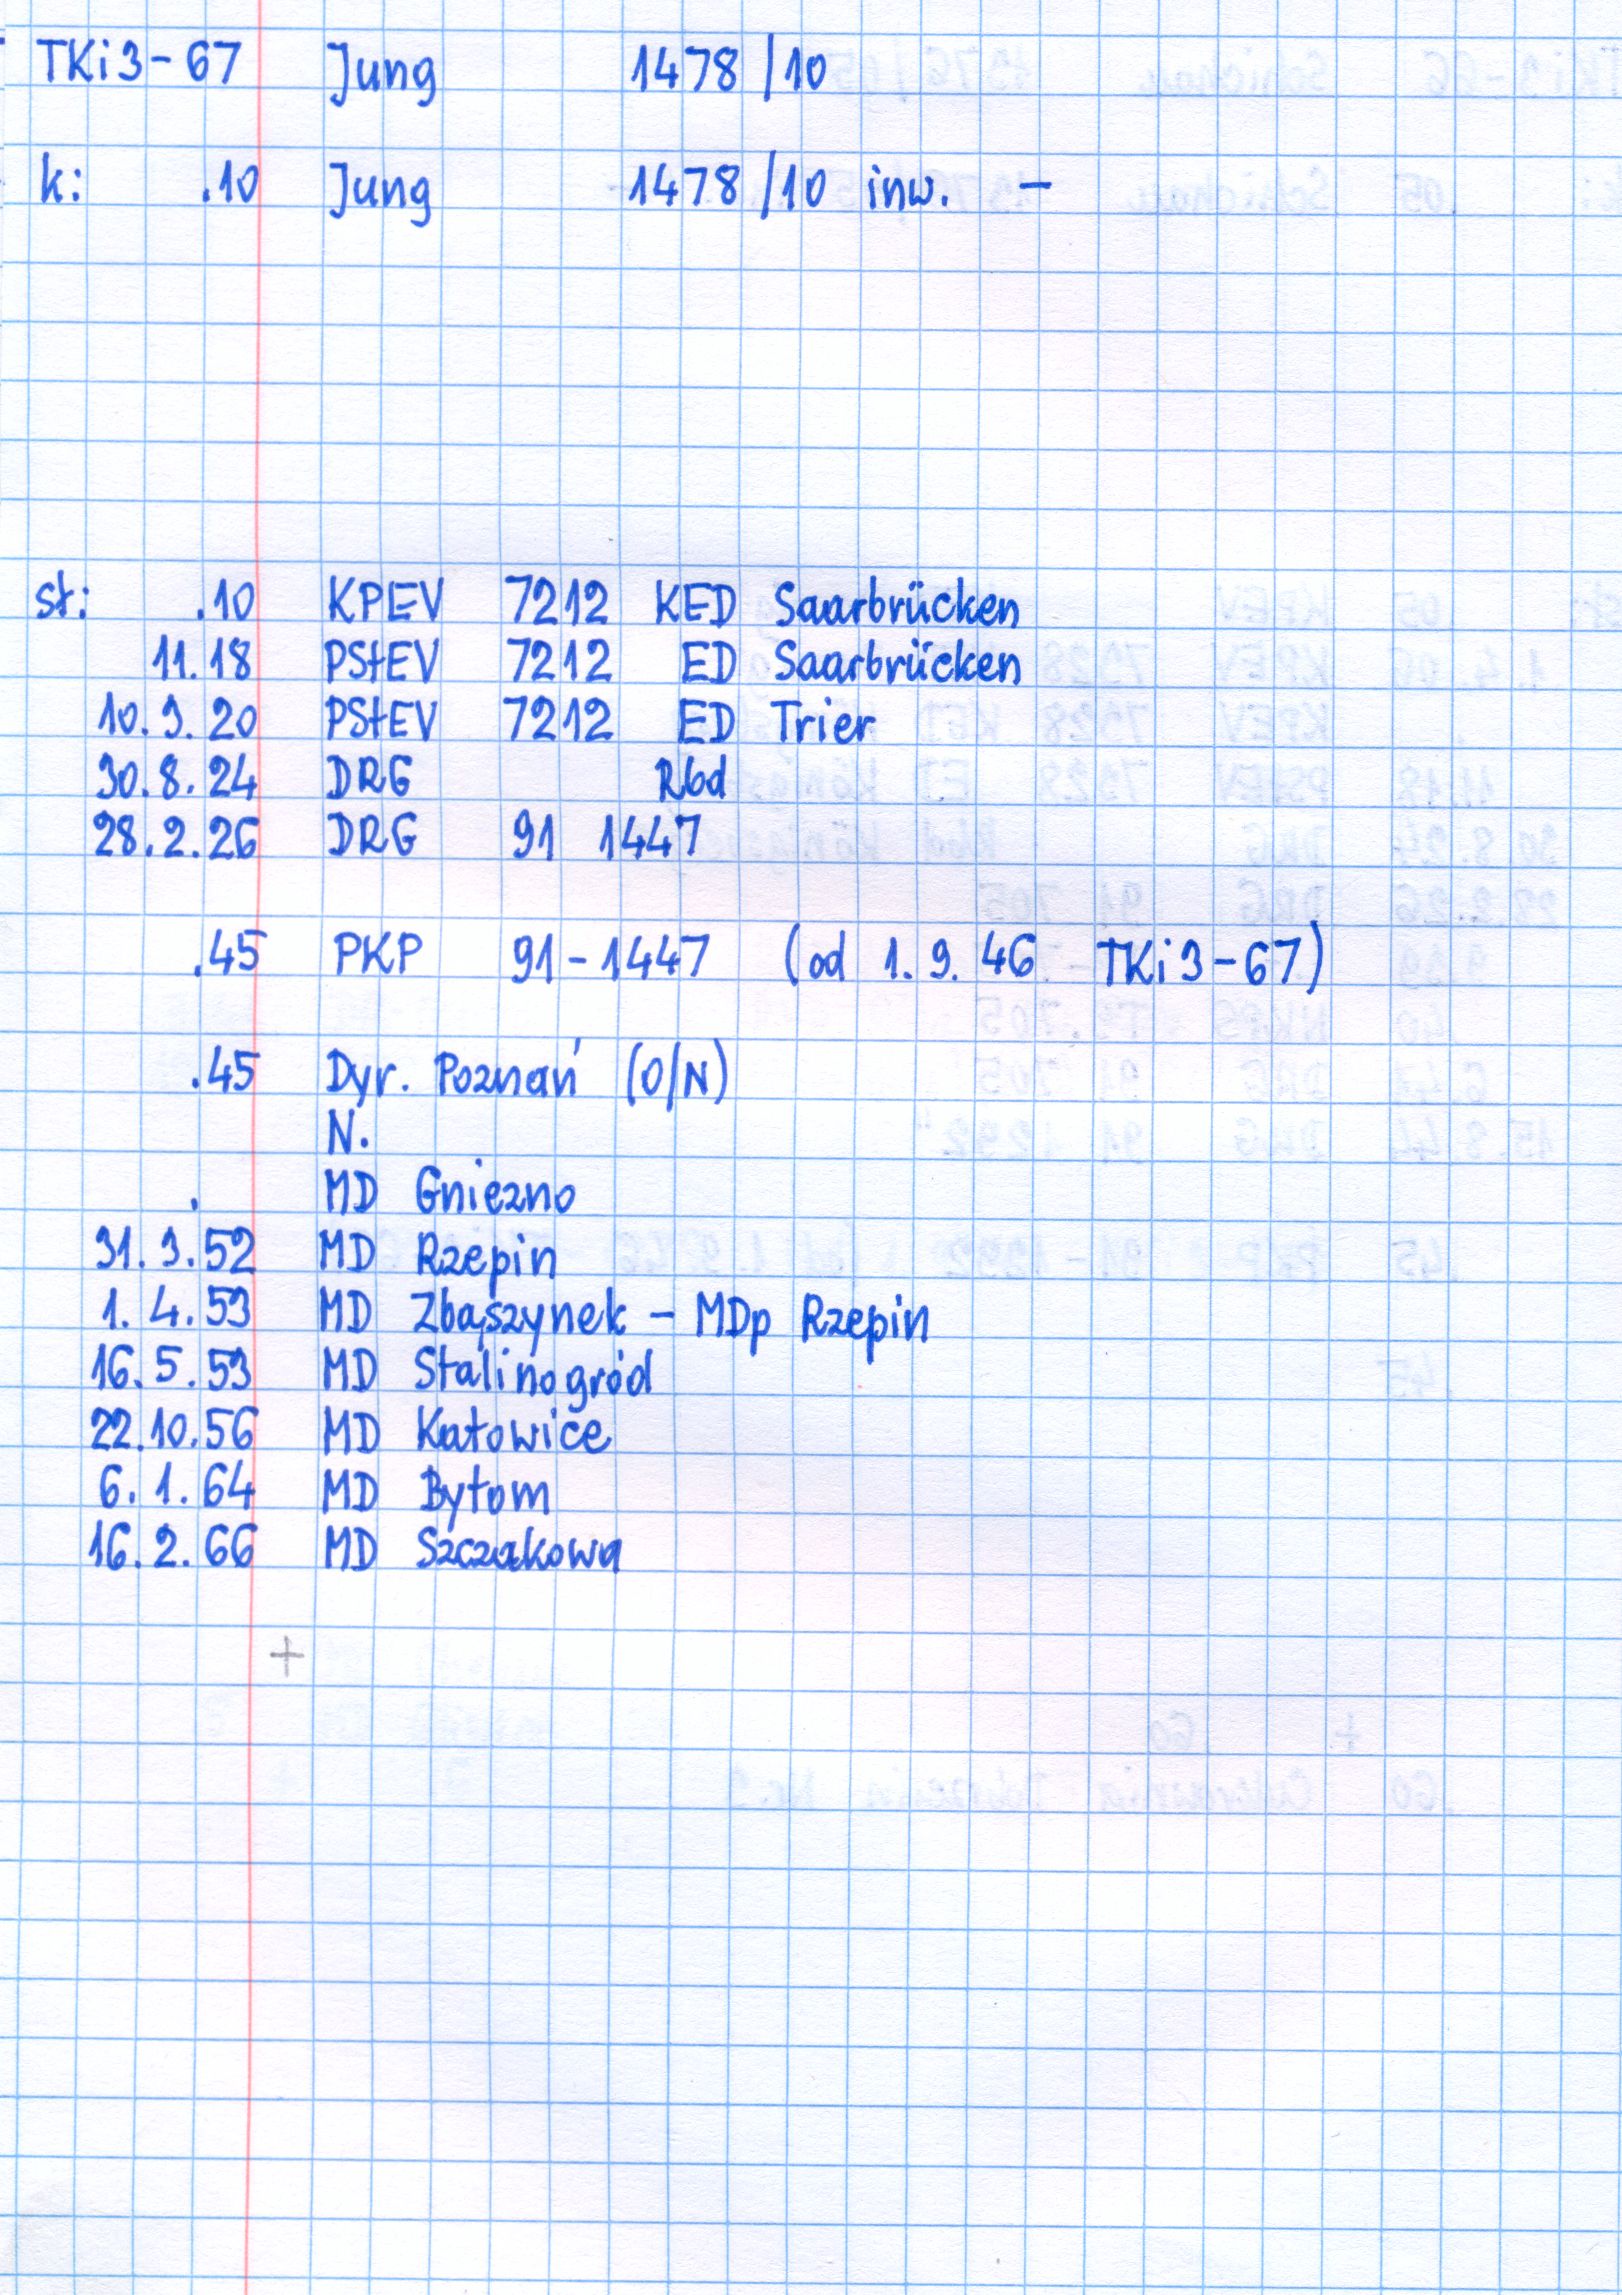 TKi3-67 Jung 1478/10
k: .10 Jung 1478/10 inw. -
st: .10 KPEV 7212 KED Saarbrücken
11.18 PStEV 7212 ED Saarbrücken
10.3.20 PStEV 7212 ED Trier
30.8.24 DRG Rbd
28.2.26 DRG 91 1447
.45 PKP 91-1447 (od 1.9.46 TKi3-67)
.45 Dyr. Poznań (O/N)
N.
. MD Gniezno
31.3.52 MD Rzepin
1.4.53 MD Zbąszynek - MDp Rzepin
16.5.53 MD Stalinogród
22.10.56 MD Katowice
6.1.64 MD Bytom
16.2.66 MD Szczakowa
+